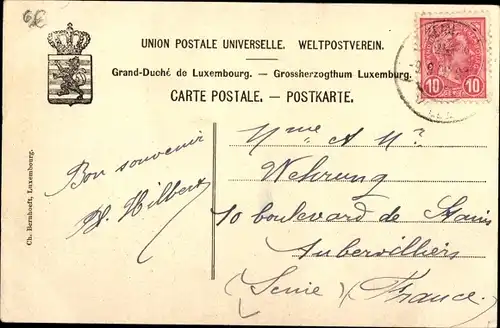 6€
UNION POSTALE UNIVERSELLE. WELTPOSTVEREIN.
Grand-Duché de Luxembourg. — Grossherzogthum Luxemburg.
CARTE POSTALE. — POSTKARTE.
10 10
Ch. Bernhoeft, Luxembourg.
Bon souvenir
Hilbert
Mme & Mr
Wehrung
10 boulevard de Stains
Aubervilliers
(Seine) (France)